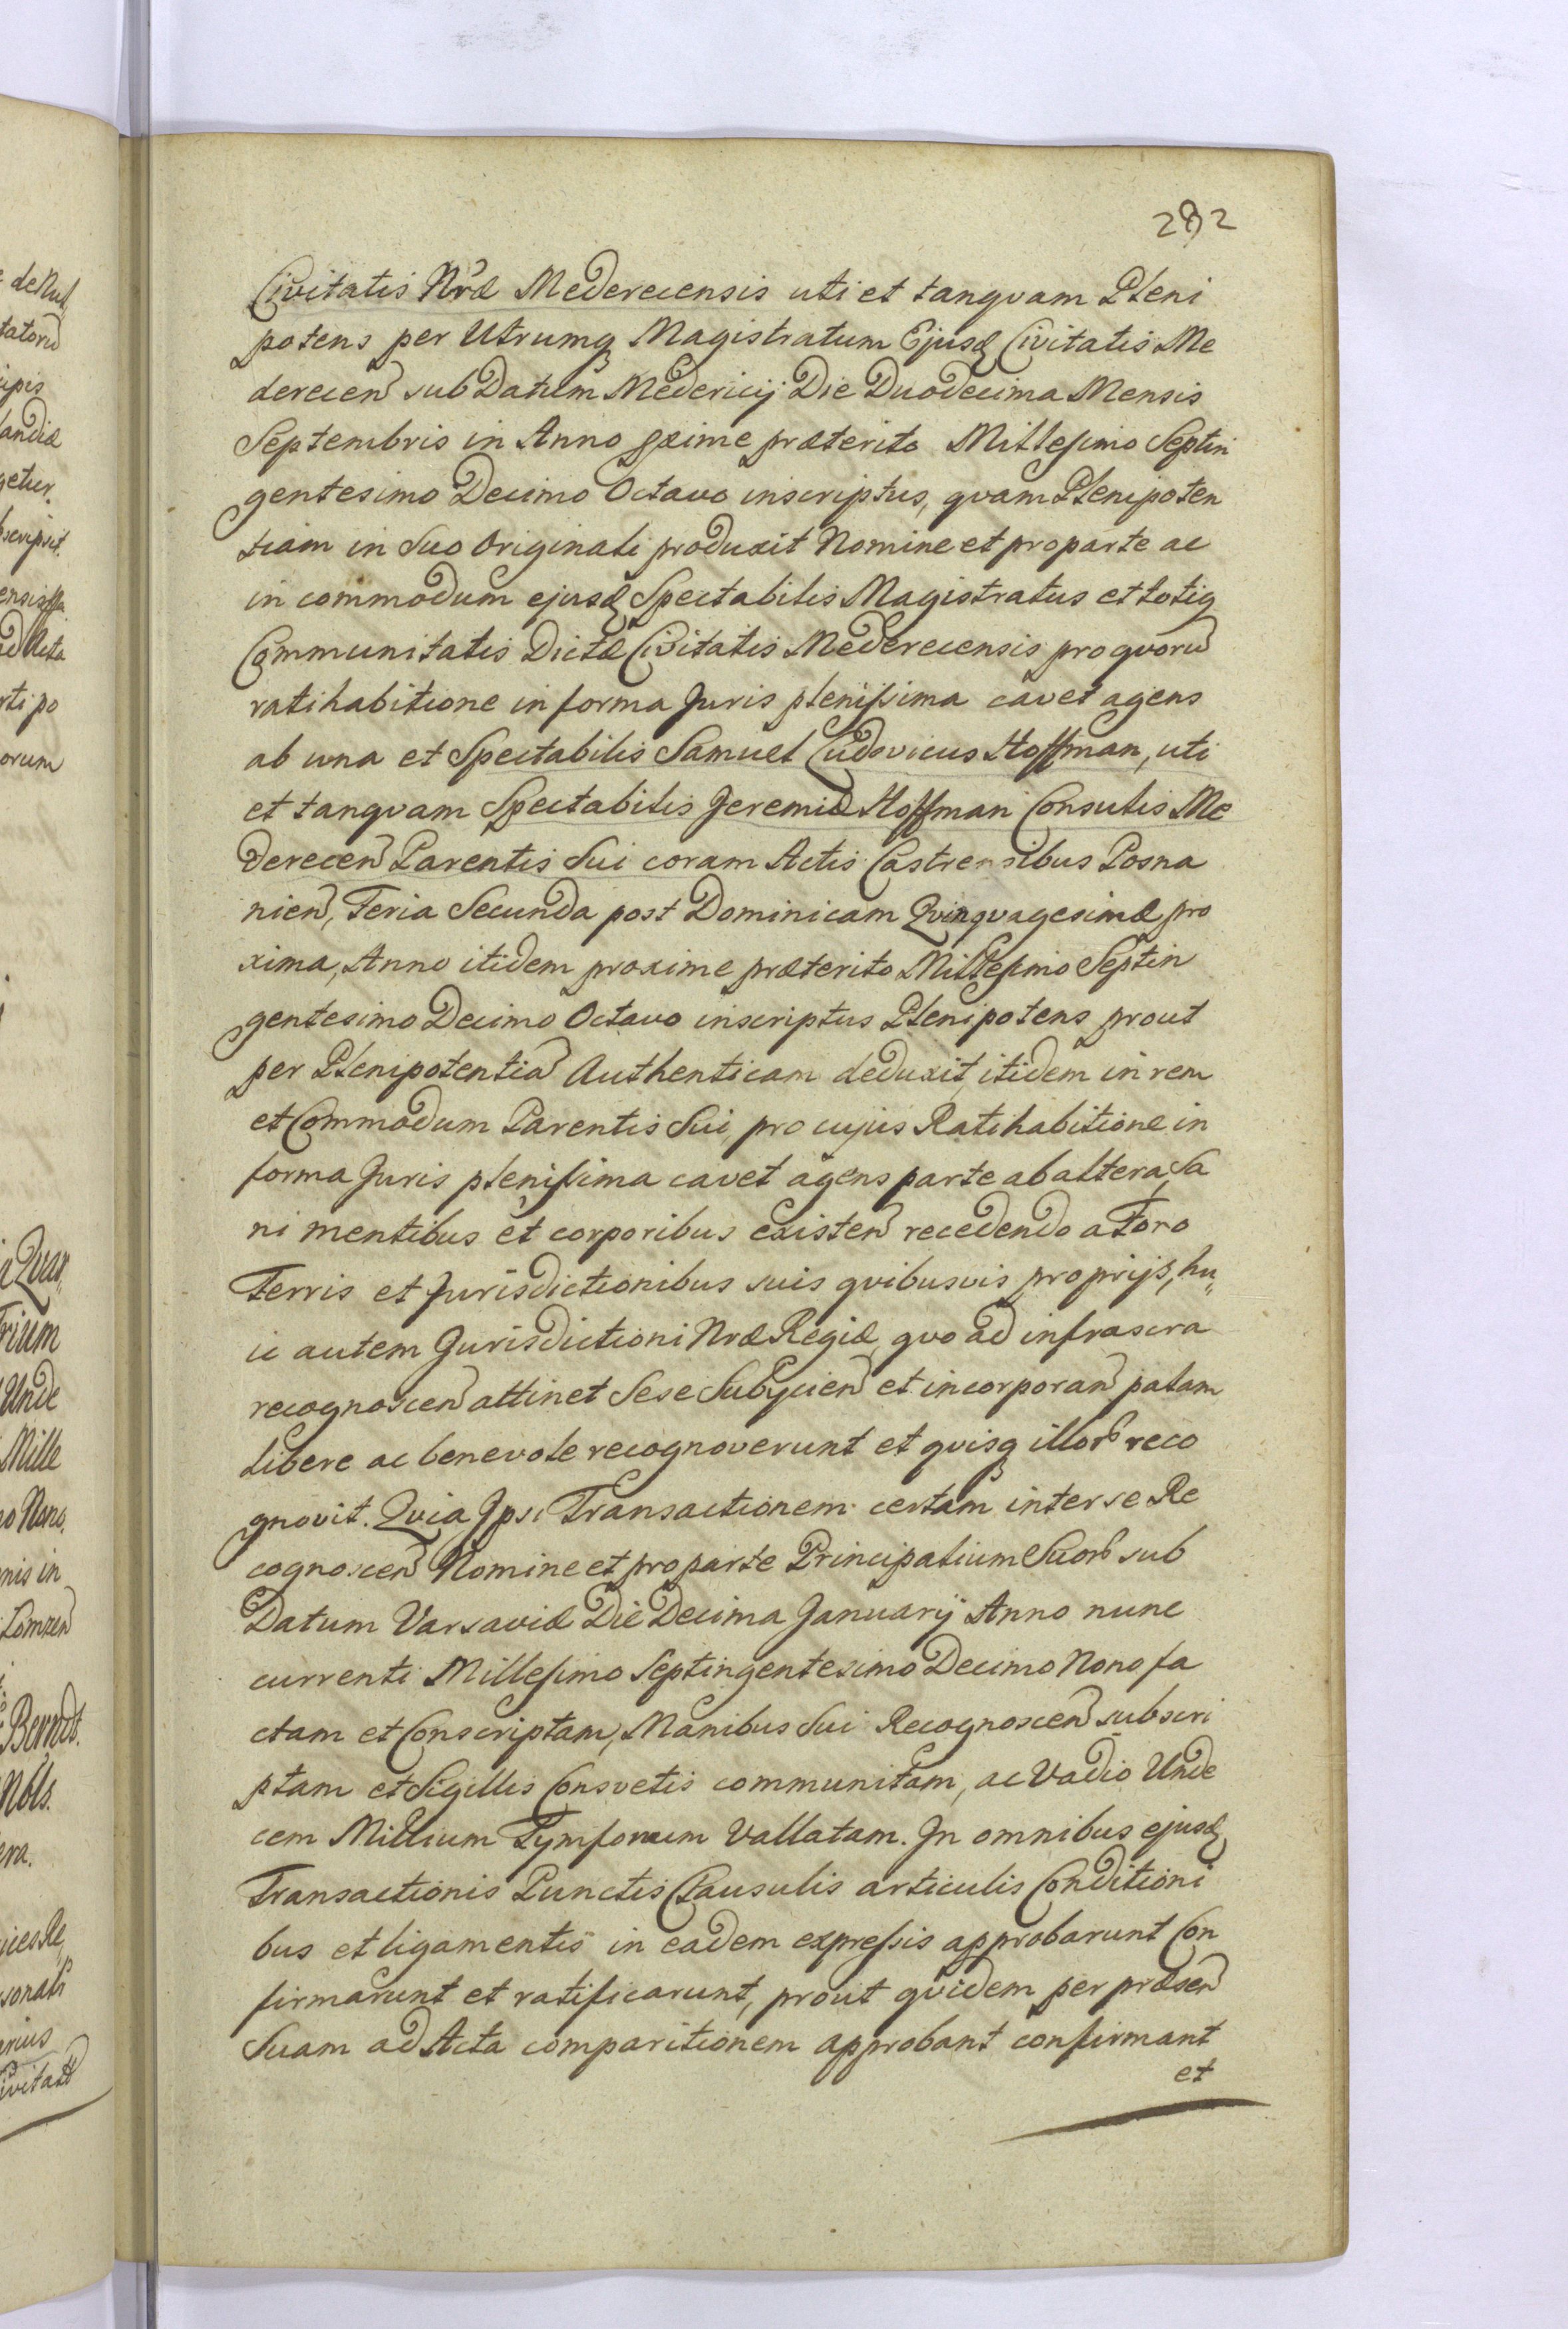 282
Civitatis Nræ Mederecensis uti et tanqvam Pleni
potens per Utrumq Magistratum Ejusd Civitatis Me
derecen sub Datum Medericij Die Duodecima Mensis
Septembris in Anno pxime præterito Millesimo Septin
gentesimo Decimo Octavo inscriptus, qvam Plenipoten
tiam in Suo Originali produxit Nomine et pro parte ac
in commodum ejusd Spectabilis Magistratus et totiq
Communitatis Dictæ Civitatis Mederecensis pro qvoru
ratihabitione in forma Juris plenissima cavet agens
ab una et Spectabilis Samuel Ludovicus Hoffman, uti
et tanqvam Spectabilis Jeremiæ Hoffman Consulis Me
derecen Parentis Sui coram Actis Castrensibus Posna
nien, Feria Secunda post Dominicam Qvinqvagesimæ pro
xima, Anno itidem proxime præterito Millesimo Septin
gentesimo Decimo Octavo inscriptus Plenipotens prout
per Plenipotentia Authenticam deduxit, itidem in rem
et Commodum Parentis Sui, pro cujus Ratihabitione in
forma Juris plenissima cavet agens parte ab altera, Sa
ni mentibus et corporibus existen recedendo a Foro
Terris et Jurisdictionibus suis qvibusvis proprijs, hu„
ic autem Jurisdictioni Nræ Regiæ, qvo ad infrascra
recognoscen attinet Sese Subijcien et incorporan palam
libere ac benevole recognoverunt et qvisq illor reco
gnovit. Qvia Ipsi Transactionem certam inter se Re
cognoscen Nomine et pro parte Principalium Suor sub
Datum Varsaviæ Die Decima Januarij Anno nunc
currenti Millesimo Septingentesimo Decimo Nono fa
ctam et Conscriptam, Manibus Sui Recognoscen subscri
ptam et Sigillis Consvetis communitam, ac Vadio Unde
cem Millium Tymforum Vallatam. In omnibus ejusd
Transactionis Punctis Clausulis articulis Conditioni
bus et ligamentis in eadem expressis approbarunt Con
firmarunt et ratificarunt, prout qvidem per præsen
Suam ad Acta comparitionem approbant confirmant
et